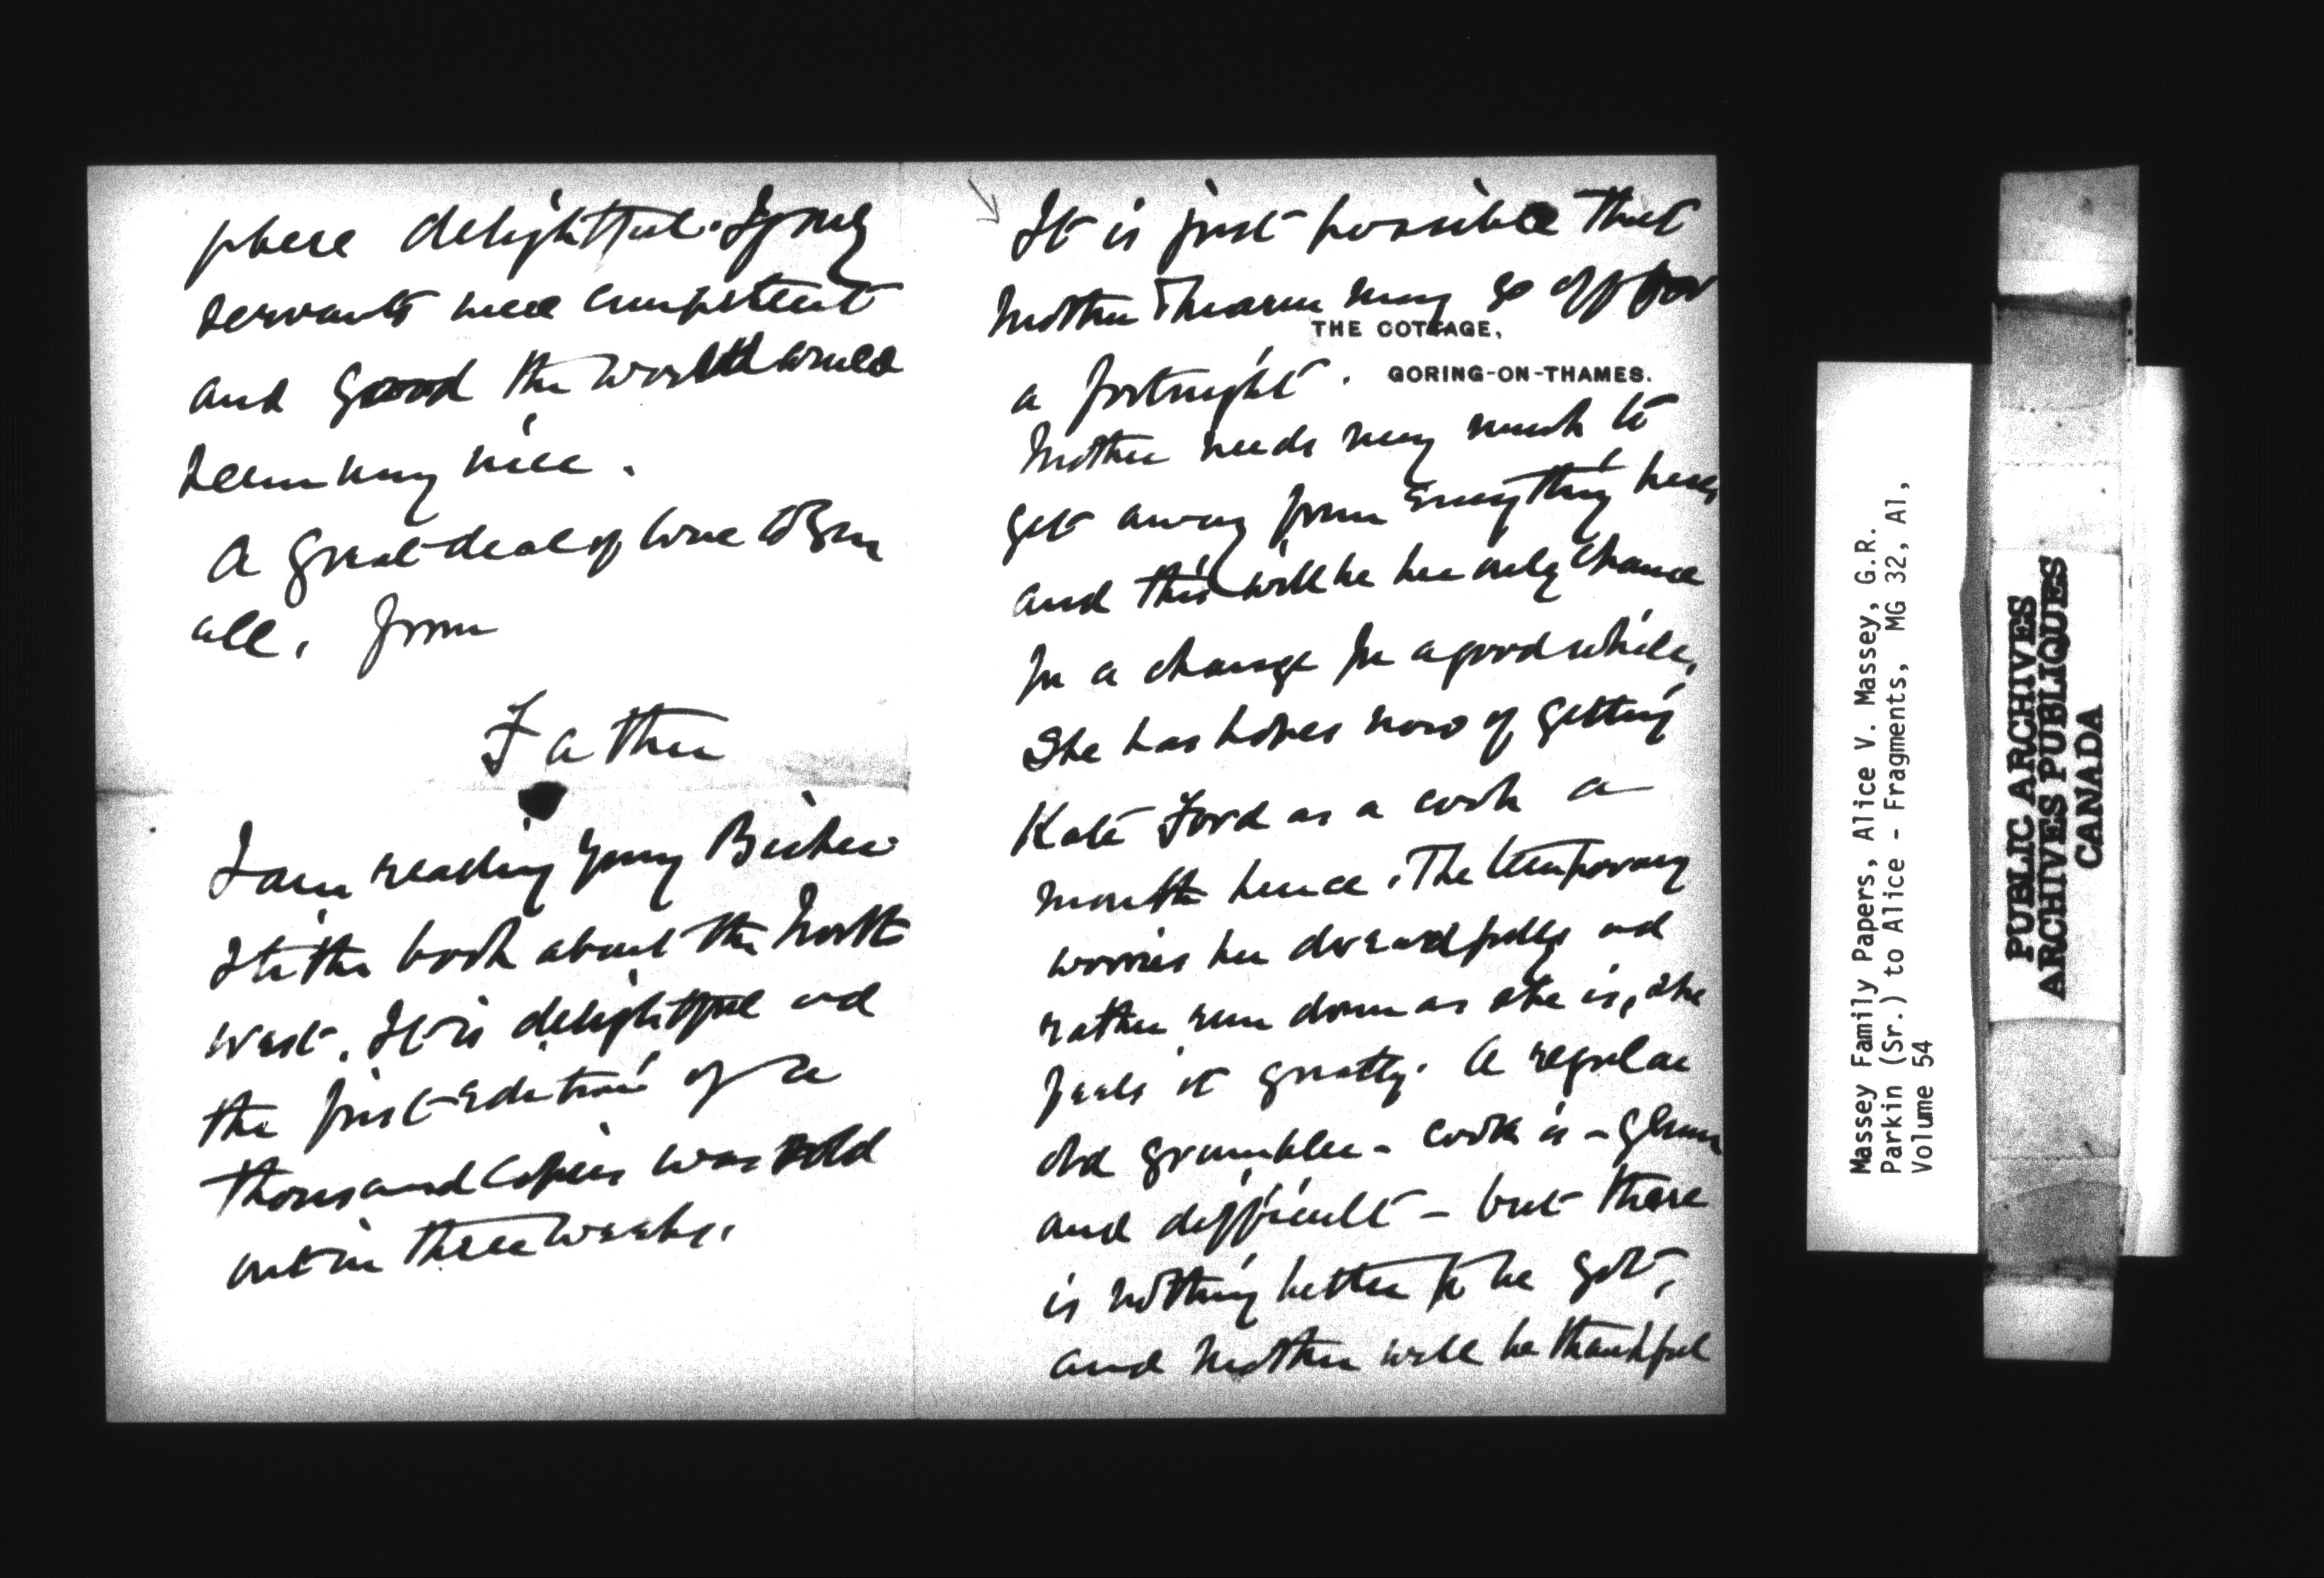 phere delightful. If only
servants were competent
and good the world would
seem very nice.
A great deal of love to you
all, from
Father
I am reading young Bishop
book about the North
West. It is delightful and
the first edition of a
thousand copies was sold
out in three weeks.
It is just possible that
Mother & may go off for
THE COTTAGE,
GORING-ON-THAMES.
a fortnight.
Mother needs very much to
get away from everything here,
and this will be her only chance
for a change for a good while.
She has hopes now of getting
Kate Ford as a cook a
month hence. The temporary
worries her dreadfully and
rather run down as she is, she
feels it greatly. A regular
old grumbler - cook is - glum
and difficult - but there
is nothing better to be got,
and Mother will be thankful
Massey Family Papers, Alice V. Massey, G.R.
Parkin (Sr.) to Alice - Fragments, MG 32, A1,
Volume 54
PUBLIC ARCHIVES
ARCHIVES PUBLIQUES
CANADA